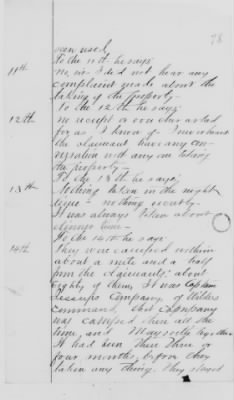 78
over used,
To the 11th he says:
11th
no, sir I did not hear any
complaint made about the
taking of the property—
To the 12th he says:
12th
no receipt or voucher asked
for as I know of. I never heard
the claimant have any con-
versation with any one taking
the property—
To the 13th he says;
13th
Nothing taken in the night
time— nothing secretly—
It was always taken about
dinner time—
To the 14th he says:
14th
They were camped within
about a mile and a half
from the claimants, about
eighty of them, it was Captain
Jessups Company, of Wilders
command, that Company
was camped there all the
time, and Maysville together
It had been there three or
four months, before they
taken any thing. They stayed